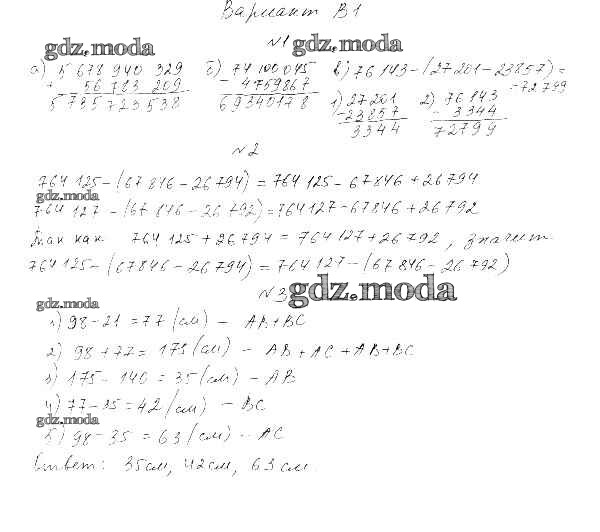 Вариант В1
№1
gdz.moda gdz.moda
а) 5 678 940 329 б) 74 100 045 в) 76 143 - (27 201 - 23857) =
+ 56 783 209 - 4759867 1) 27 201 2) 76 143 = 72 799
5 735 723 538 69340178 - 23857 - 3344
3344 72799
№2
764 125 - (67 846 - 26 794) = 764 125 - 67 846 + 26 794
gdz.moda
764 127 - (67 846 - 26 792) = 764 127 - 67846 + 26 792
Так как 764 125 + 26 794 = 764 127 + 26 792, значит
764 125 - (67846 - 26 794) = 764 127 - (67 846 - 26 792)
№3 gdz.moda
gdz.moda
1) 98 - 21 = 77 (см) - AB + BC
2) 98 + 77 = 175 (см) - AB + AC + AB + BC
3) 175 - 140 = 35 (см) - AB
4) 77 - 35 = 42 (см) - BC
gdz.moda
5) 98 - 35 = 63 (см) - AC
Ответ: 35 см, 42 см, 63 см.